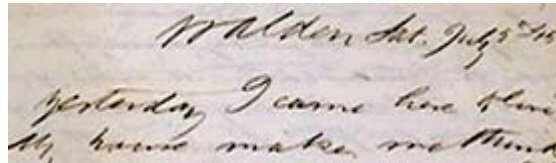 Walden Sat. July 5th 45
Yesterday I came here to live
My house makes me think